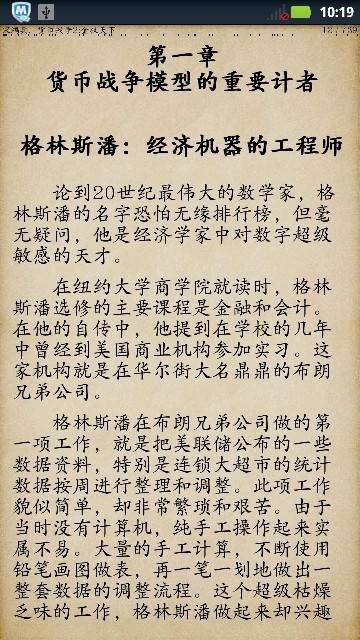 10:19
12/739
第一章
货币战争模型的重要计者
格林斯潘：经济机器的工程师
论到20世纪最伟大的数学家，格
林斯潘的名字恐怕无缘排行榜，但毫
无疑问，他是经济学家中对数字超级
敏感的天才。
在纽约大学商学院就读时，格林
斯潘选修的主要课程是金融和会计。
在他的自传中，他提到在学校的几年
中曾经到美国商业机构参加实习。这
家机构就是在华尔街大名鼎鼎的布朗
兄弟公司。
格林斯潘在布朗兄弟公司做的第
一项工作，就是把美联储公布的一些
数据资料，特别是连锁大超市的统计
数据按周进行整理和调整。此项工作
貌似简单，却非常繁琐和艰苦。由于
当时没有计算机，纯手工操作起来实
属不易。大量的手工计算，不断使用
铅笔画图做表，再一笔一划地做出一
整套数据的调整流程。这个超级枯燥
乏味的工作，格林斯潘做起来却兴趣